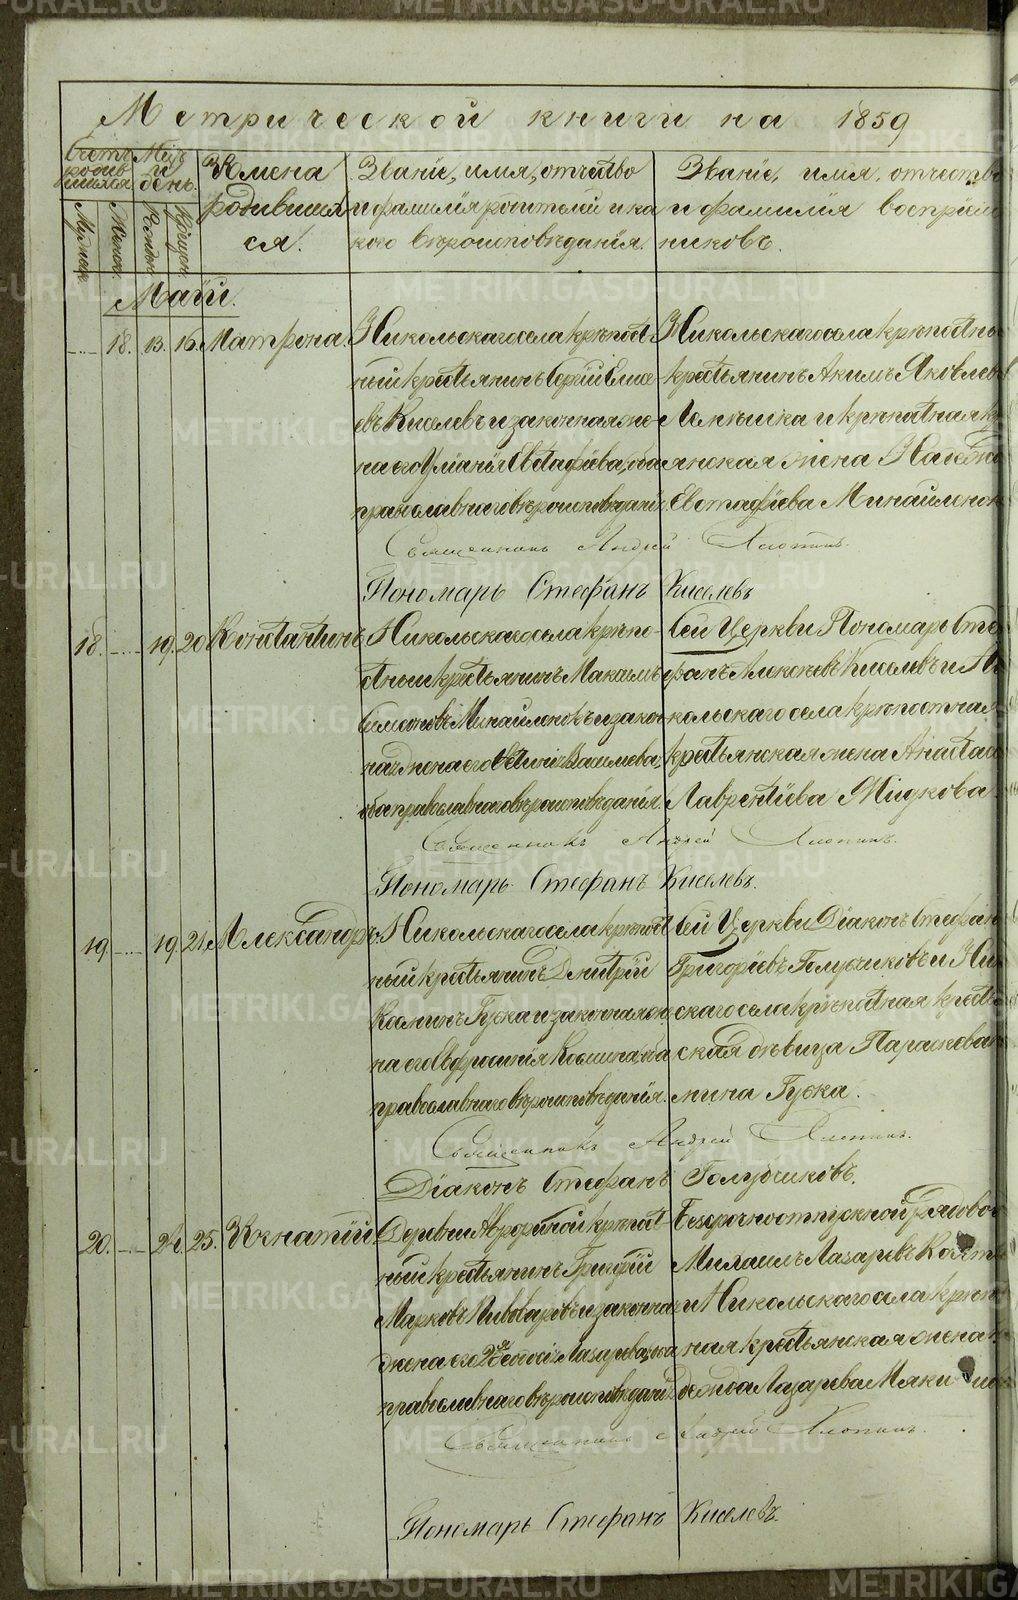 METRIKI.GASO-URAL.RU
Метрической книги на 1859
Счетъ родив шихся
Мужеск. Женск.
Мц и день.
Рожден. Крещен.
Имена родивших ся.
Званіе, имя, отчество
и фамилія родителей и ка
кого вѣроисповѣданія.
Званіе, имя, отчество
и фамилія воспріем
никовъ.
Маій.
18. 13. 16. Матрона.
Никольскаго села крѣпост
ный крестьянинъ Сергій Елисе
евъ Киселевъ и законная же
на его Уліанія Евстафіева, оба
православнаго вѣроисповѣданія.
Никольскаго села крѣпостны
крестьянинъ Акимъ Яковлев
и крѣпостная кр
янская жена
Евстафіева Михайленк
Священникъ Андрей Хлопинъ.
Пономарь Стефанъ Киселевъ
18. 19. 20. Константинъ.
Никольскаго села крѣпо-
стный крестьянинъ Максимъ
Симоновъ Михайленковъ и закон
ная жена его Васильева,
оба православнаго вѣроисповѣданія.
Сей Церкви Пономарь Сте
фанъ Алексѣевъ Киселевъ и Ни
кольскаго села крѣпостная
крестьянская жена Анастас
Лаврентіева Мидкова
Священникъ Андрей Хлопинъ.
Пономарь Стефанъ Киселевъ.
19. 19. 21. Александръ.
Никольскаго села крѣпост
ный крестьянинъ Дмитрій
Козминъ Гуська и законная же
на его Евфросинія Козмина, оба
православнаго вѣроисповѣданія.
Сей Церкви Діаконъ Стефан
Григоріевъ Голубчиковъ и Ник
скаго села крѣпостная кресть
ская дѣвица Параскева
мина Гуська.
Священникъ Андрей Хлопинъ.
Діаконъ Стефанъ Голубчиковъ.
20. 24. 25. Игнатій
Деревни крѣпост
ный крестьянинъ Григорій
Марковъ Пивоваровъ и законная
жена его Лазарева, оба
православнаго вѣроисповѣданія.
Безсрочноотпускной Рядовой
Михаилъ Лазаревъ
и Никольскаго села крѣпост
ная крестьянская жена
Лазарева
Священникъ Андрей Хлопинъ.
Пономарь Стефанъ Киселевъ.